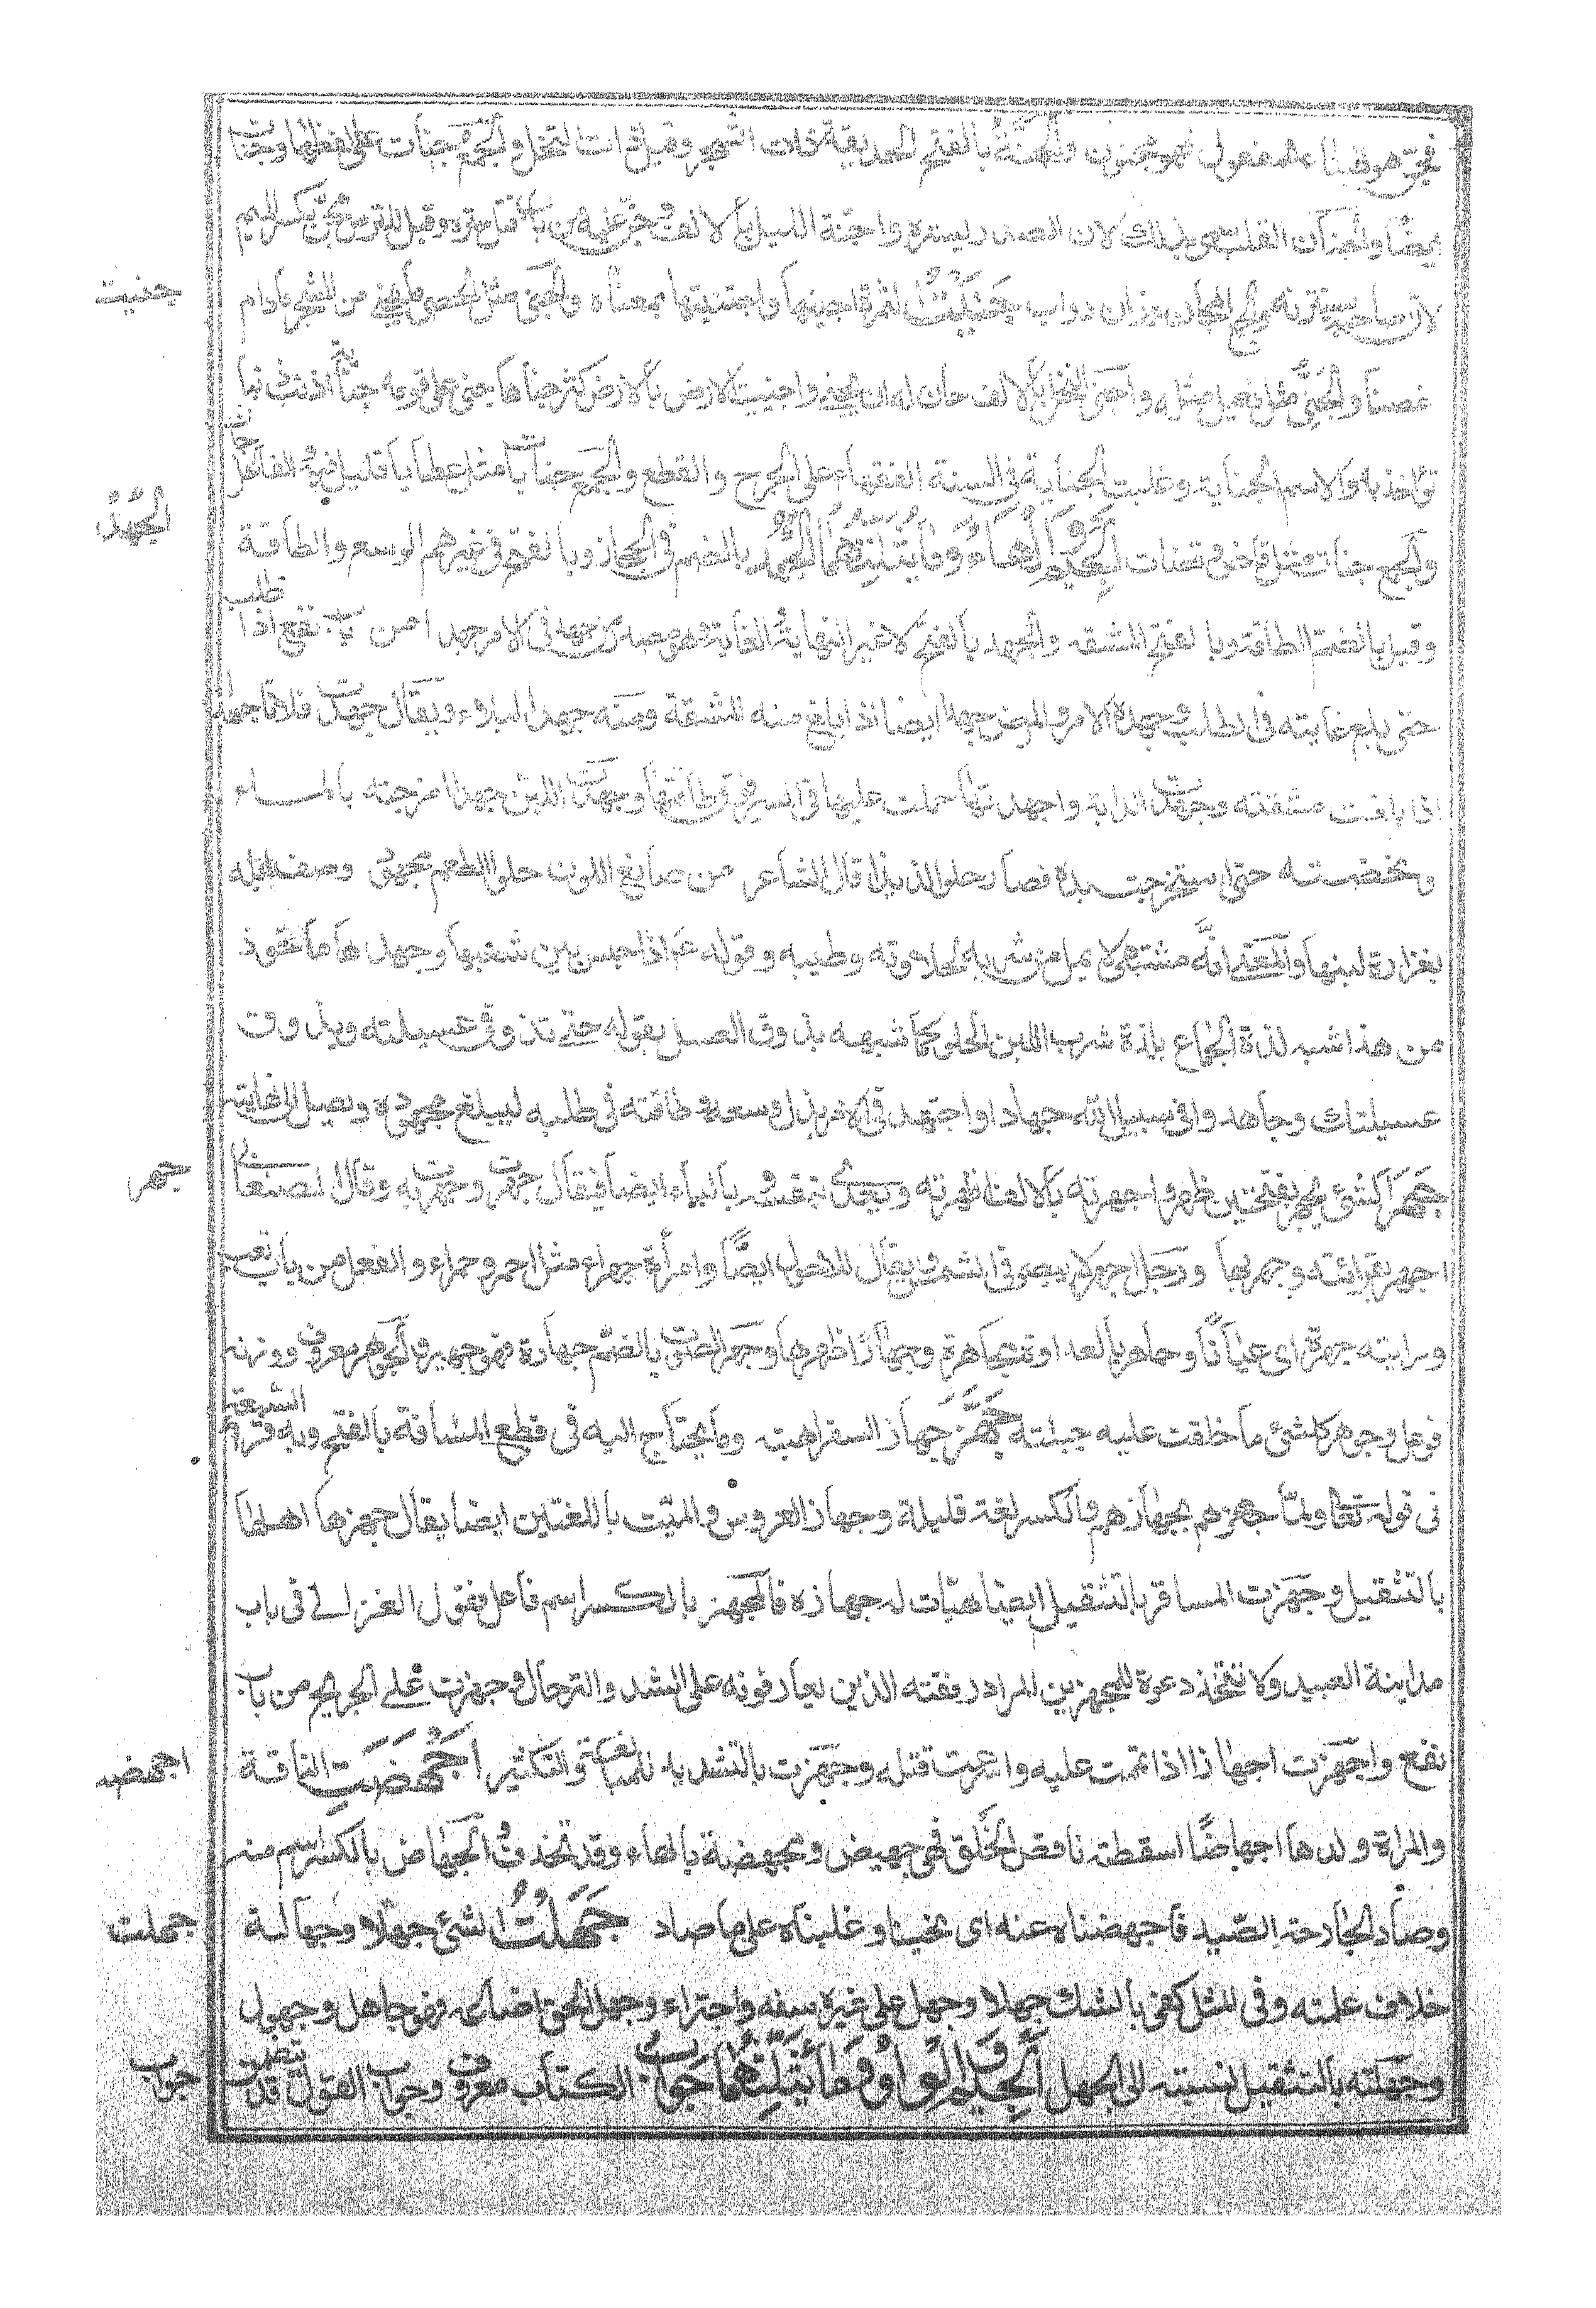 فجن هو فبناءه للمفعول فهو مجنون والجنة بالفتح الحديقة ذات الشجر وقيل ذات النخل والجمع جنات على لفظها وجنان
ايضا والجنان القلب سمى بذلك لان الصدر يستره واجنه الليل بالالف وجن عليه من باب قتل ستره وقيل للترس مجن بكسر الميم
لان صاحبه يستتر به والجمع المجان وزان دواب جَنَيْتُ الثمرة اجنيها واجتنيتها بمعناه والجنى مثل الحصى ما يجنى من الشجر مادام
جنيت
غضنا والجنى مثل فعيل مثله واجنى النخل بالالف حان له ان يجنى واجنت الارض بالالف كثر جناها وجنى على قومه جناية اذنب ذنبا
تؤاخذ به والاسم الجناية وغلبت الجناية فى السنة الفقهاء على الجرح والقطع والجمع جنايات مثل عطايا قليل فيه الفاعل جان
والجمع جناة مثل قاض وقضات اَلْجِيْمُ وَالْهَاءُ وَمَا يُثَلِّثُهُمَا الجُهْدُ بالضم فى الحجاز وبالفتح فى غيرهم الوسع والطاقة
الجُهْدُ
وقيل بالضم الطاقة وبالفتح المشقه والجهد بالفتح لا غير النهاية والغاية وهو مصدر من جهد فى الامر جهدا من باب نفع اذا طلب
حتى بلغ غايته فى الطلب وجهده الامر والمرض جهدا ايضا اذا بلغ منه المشقة ومنه جهد البلاء ويقال جهدت فلانا جهدا
اذا بلغت مشقته وجهدت الدابة واجهدتها حملت عليها فى السير فوق طاقتها وجهدت اللبن جهدا مزجته بالمــاء
ومخضته حتى استخرجت زبده فصار حلوا لذيذا قال الشاعر من صافى اللون حلو الطعم مجهود وصف ابله
بغزارة لبنها والمعنى انه مشتهى لا يمل من شربه لحلاوته وطيبه وقوله عم اذا جلس بين شعبها وجهدها مأخوذ
من هذا شبه لذة الجماع بلذة شرب اللبن الحلو كما شبهه بذوق العسل بقوله حتى تذوقى عسيلته ويذوق
عسيلتك وجاهد فى سبيل الله جهادا واجتهد فى الامر بذل وسعه وطاقته فى طلبه ليبلغ مجهوده ويصل الى غايته
جَهَرَ الشئ يجهر بفتحتين ظهر واجهرته بالالف اظهرته ويعدى بنفسه وبالباء ايضا فيقال جهرت وجهرت به وقال الصنعانى
جهر
اجهر بقرائته وجهر بها ورجل اجهر لا يبصر فى الشمس ويقال للاحول ايضًا وامرأة جهراء مثل احمر وحمراء والفعل من باب تعب
ورايته جهرة اى عيانًا وجاهر بالعداوة مجاهرة وجهارًا اظهرها وجهر الصوت بالضم جهارة فهو جهير والجوهر معروف ووزنه
فوعل وجوهر كل شئ ما خلقت عليه جبلته جَهَّزَ جهاز السفر اهبته وما يحتاج اليه فى قطع المسافة بالفتح وبه قرأ السبعة
فى قوله تعالى ولما جهزهم بجهازهم والكسر لغة قليلة وجهاز العروس والميت باللغتين ايضا يقال جهزها اهلها
بالتثقيل وجهزت المسافر بالتثقيل ايضا هيأت له جهازه فالمجهز بالكسر اسم فاعل فقول الغزالى فى باب
مداينة العبيد ولا تتخذ دعوة للمجهزين المراد رفقته الذين يعاونونه على الشد والترحال وجهزت على الجريح من باب
نفع واجهزت اجهازا اذا اتممت عليه واسرعت قتله وجهزت بالتشديد للمبالغة والتكثير اَجْهَضَتِ الناقة
اجهضت
والمراة ولدها اجهاضًا اسقطته ناقص الخلق فهى جهيض ومجهضة بالهاء وقد تحذف والجهاض بالكسر اسم منه
وصاد الجارحة الصيد فاجهضناه عنه اى نحيناه وغلبناه على ما صاد جَهِلْتُ الشئ جهلا وجهالة
جهلت
خلاف علمته وفى المثل كفى بالشك جهلا وجهل على غيره سفه واجتراء وجهل الحق اضاعه فهو جاهل وجهول
وجهلته بالتثقيل نسبته الى الجهل اَلْجِيْمُ وَالْوَاوُ وَمَا يُثَلِّثُهُمَا جَوَابُ الكتاب معروف وجواب القول قد يتضمن
جواب